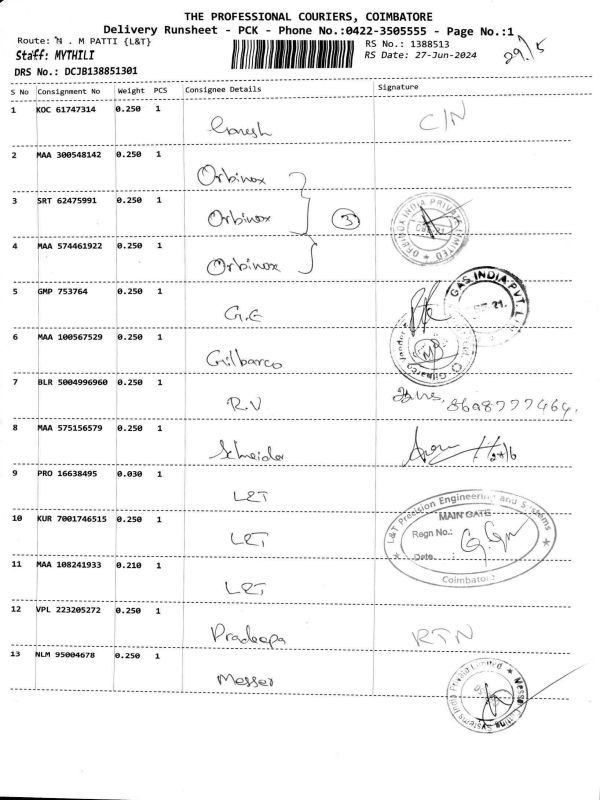 THE PROFESSIONAL COURIERS, COIMBATORE
Delivery Runsheet - PCK - Phone No.:0422-3505555 - Page No.:1
Route: N . M PATTI {L&T}
RS No.: 1388513
29/5
Staff: MYTHILI
RS Date: 27-Jun-2024
DRS No.: DCJB138851301
S No Consignment No Weight PCS Consignee Details Signature
1 KOC 61747314 0.250 1 Ganesh C/N
2 MAA 300548142 0.250 1 Orbinox
3 SRT 62475991 0.250 1 Orbinox 3
ORBINOX INDIA PRIVATE LIMITED
4 MAA 574461922 0.250 1 Orbinox
5 GMP 753764 0.250 1 G.E
GAS INDIA PVT. L
6 MAA 100567529 0.250 1 Gilbarco
Gilbarco Veeder
7 BLR 5004996960 0.250 1 R.V 8698777464.
8 MAA 575156579 0.250 1 Schneider
9 PRO 16638495 0.030 1 L&T
L&T Precision Engineering and Systems
MAIN GATE
10 KUR 7001746515 0.250 1 L&T
Regn No.:
Date :
11 MAA 108241933 0.210 1 L&T
Coimbatore
12 VPL 223205272 0.250 1 Pradeepa RTN
13 NLM 95004678 0.250 1 Messer
Messer Cutting Systems India Private Limited